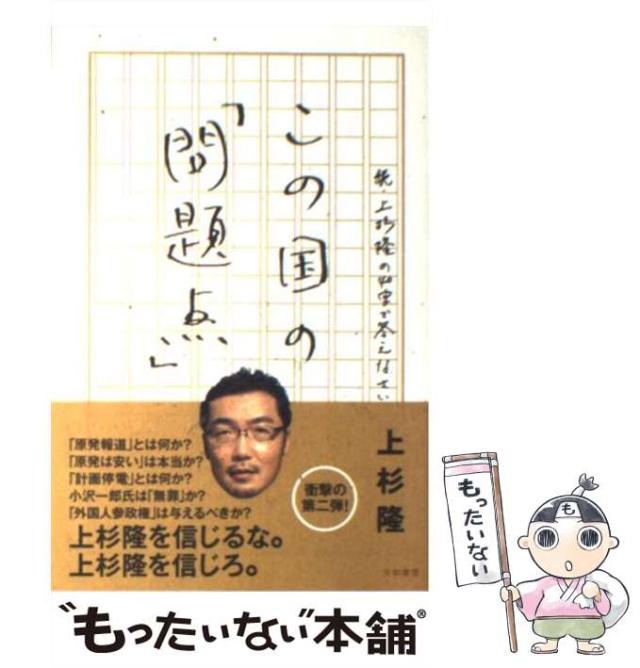 この国の
「問題点」
続・上杉隆の
上杉隆
「原発報道」とは何か?
「原発は安い」は本当か?
「計画停電」とは何か?
小沢一郎氏は「無罪」か?
「外国人参政権」は与えるべきか?
上杉隆を信じるな。
上杉隆を信じろ。
衝撃の
第二弾!
大和書房
“もったいない”本舗®
も
もったいない